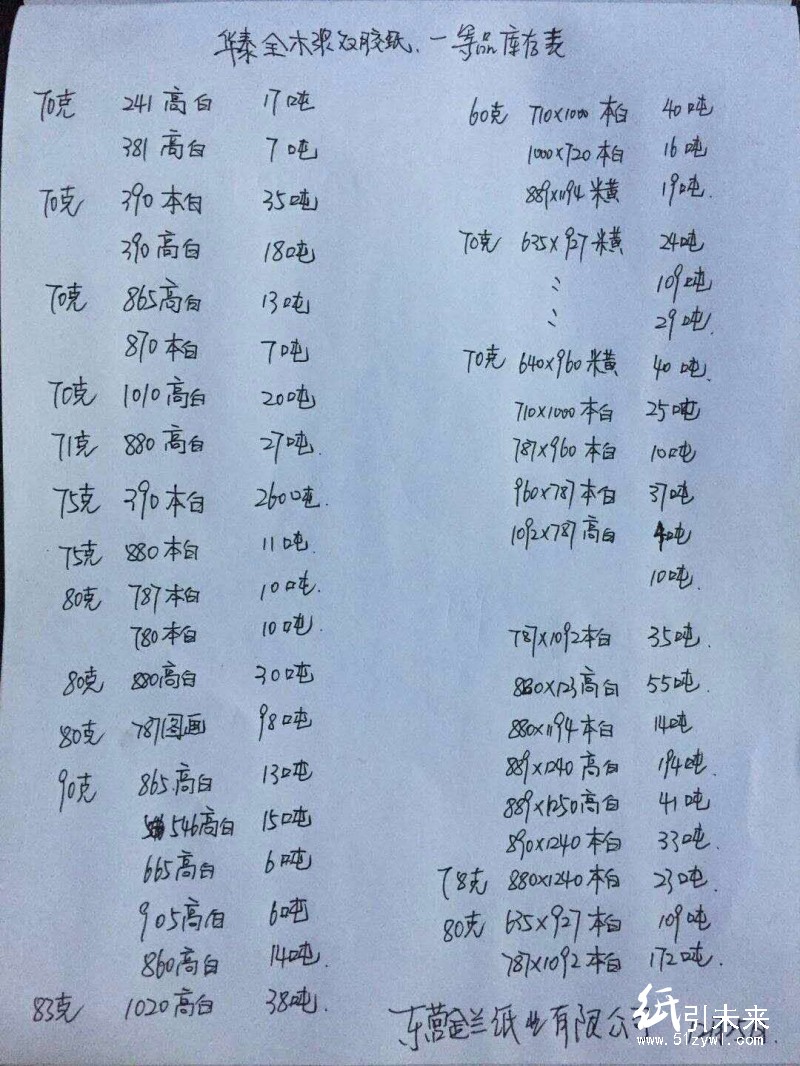 华泰全木浆双胶纸、一等品库存表
70克 241高白 17吨
381高白 7吨
70克 390本白 35吨
390高白 18吨
70克 865高白 13吨
870本白 7吨
70克 1010高白 20吨
71克 880高白 27吨.
75克 390本白 260吨.
75克 880本白 11吨.
80克 787本白 10吨.
780本白 10吨.
80克 880高白 30吨.
80克 787图画 98吨
90克 865高白 13吨
546高白 15吨
665高白 6吨
905高白 6吨
860高白 14吨.
83克 1020高白 38吨.
60克 710×1000本白 40吨
1000×720本白 16吨
889×1194米黄 19吨.
70克 635×927米黄 24吨
〃 109吨
〃 29吨.
70克 640×960米黄 40吨.
710×1000本白 25吨
787×960本白 10吨
960×787本白 37吨
1092×787高白 4吨
10吨.
787×1092本白 35吨.
880×123高白 55吨.
880×1194本白 14吨
889×1240高白 194吨.
889×1250高白 41吨
890×1240本白 33吨
78克 880×1240本白 23吨.
80克 635×927本白 109吨
787×1092本白 172吨.
东营金兰纸业有限公司
纸引未来
www.51zyw1.com